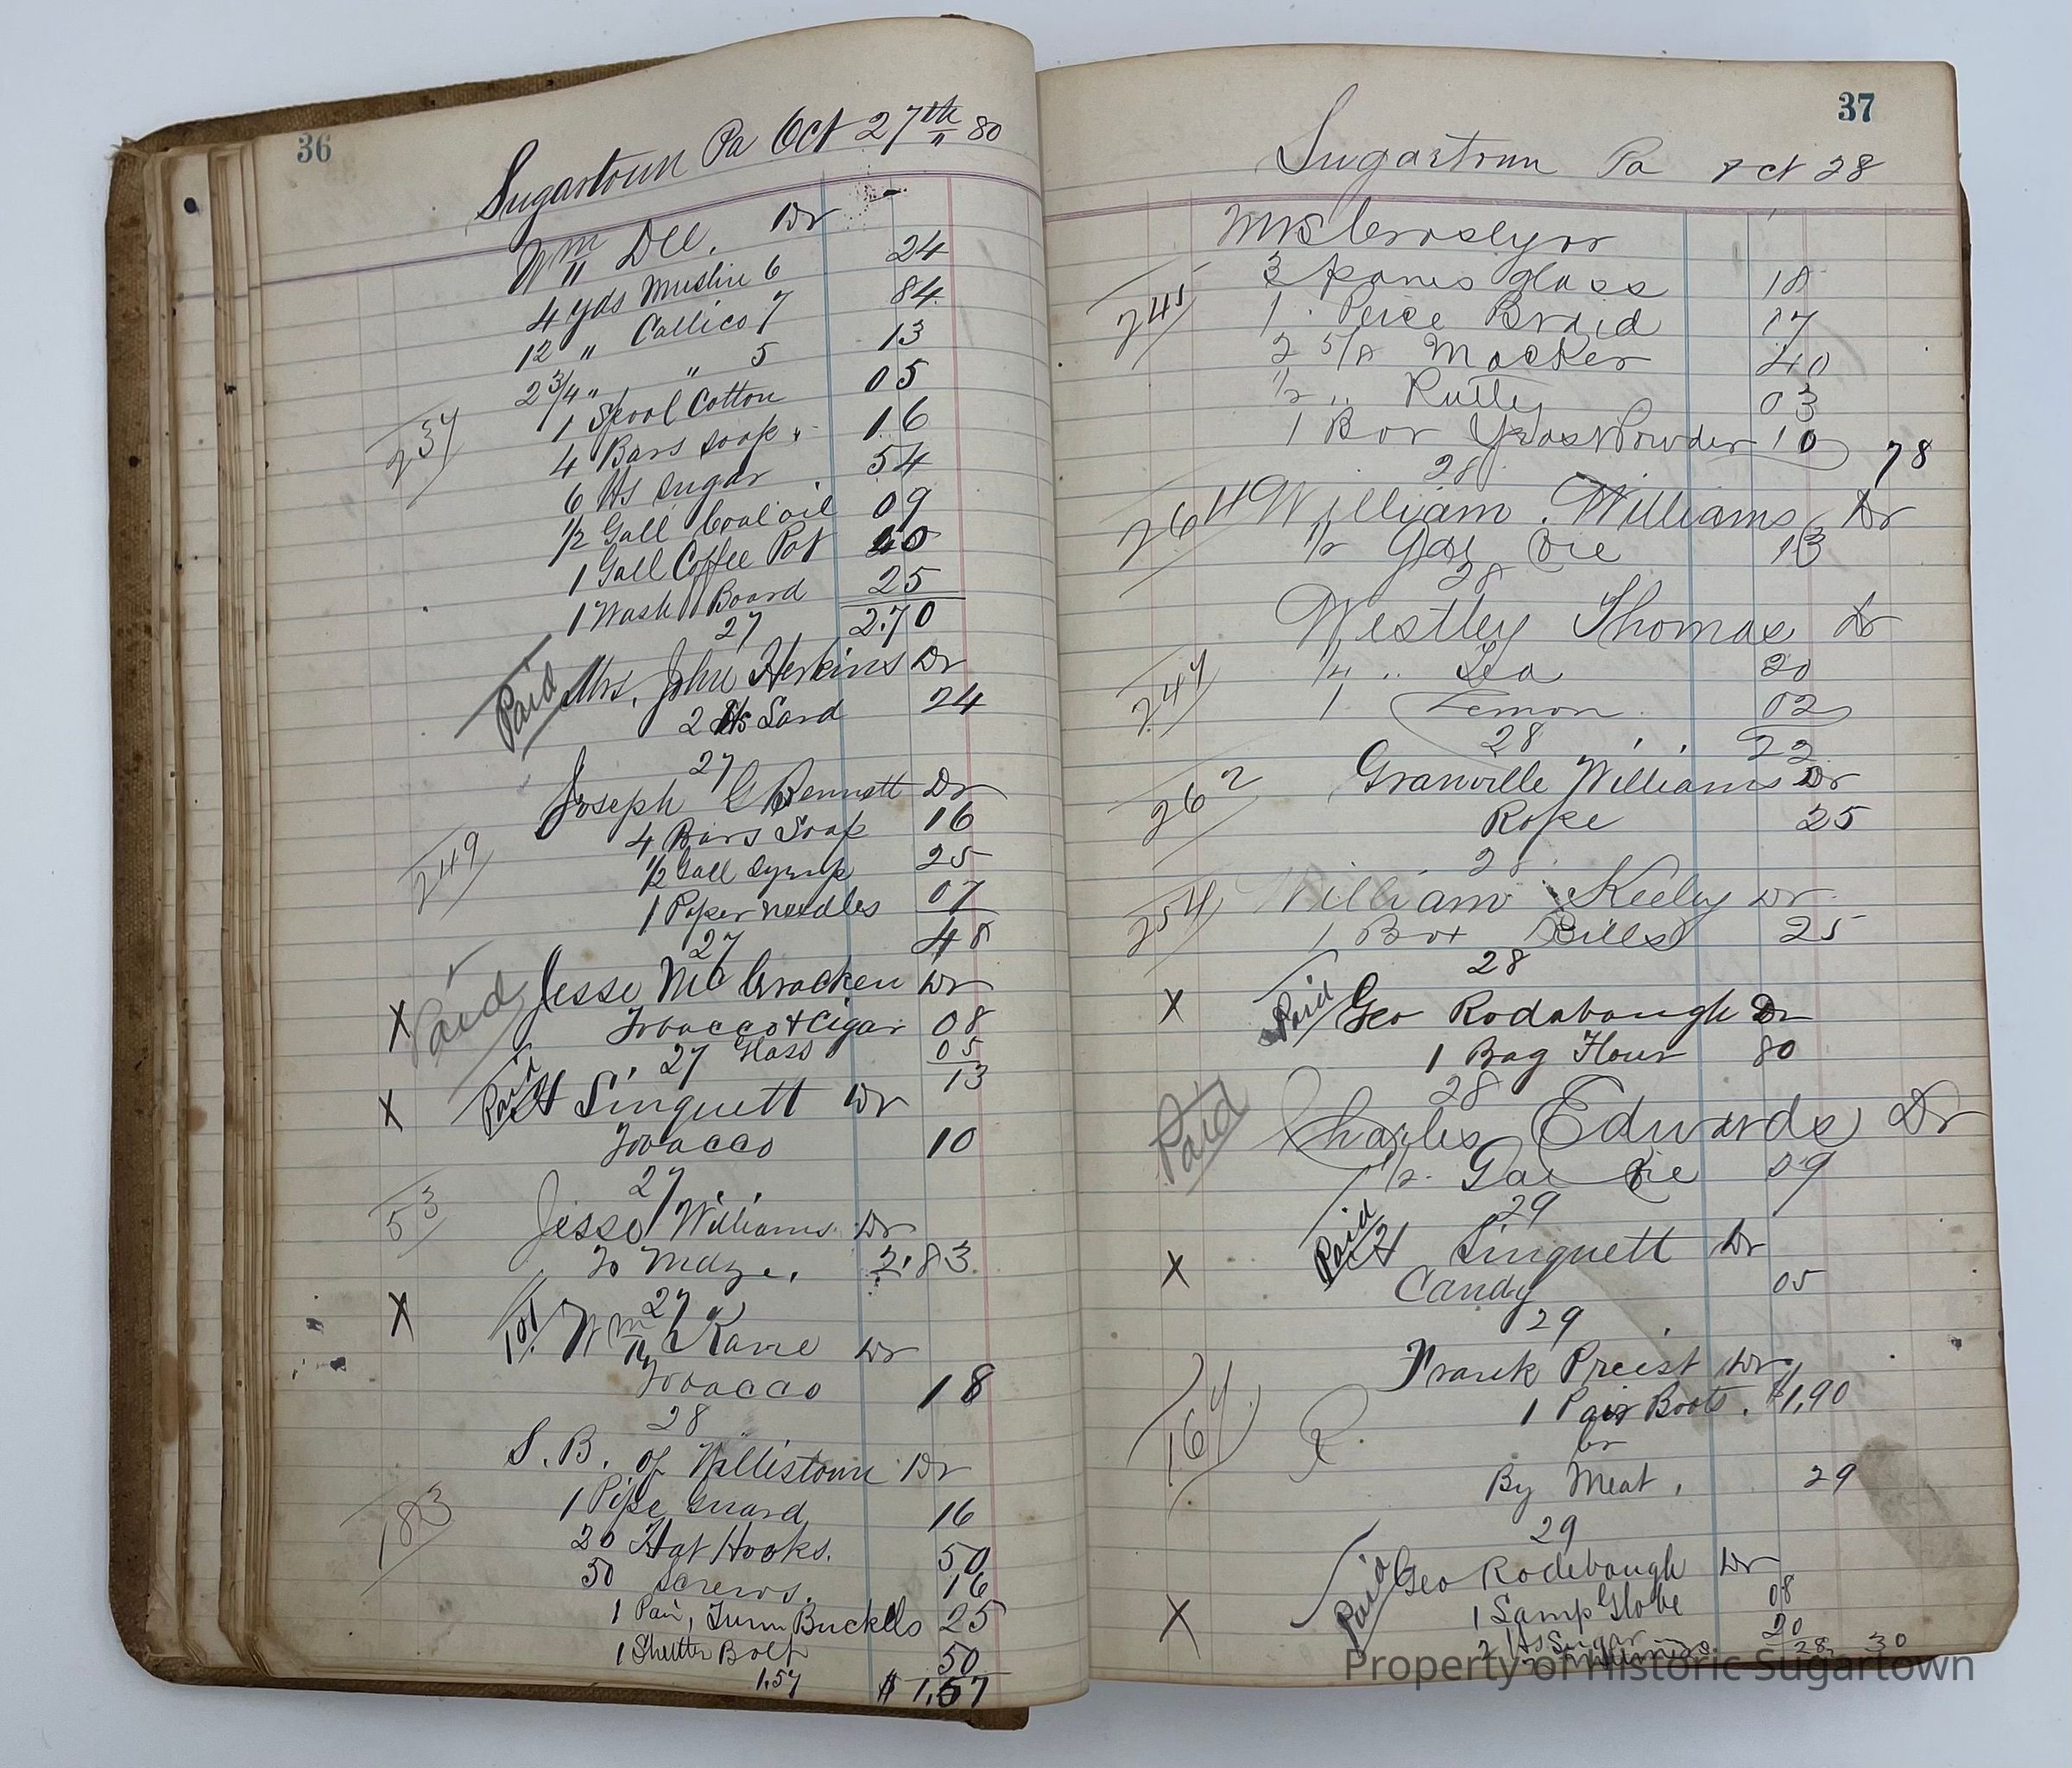 36
Sugartown Pa Oct 27th 80
Wm Dee. Dr
4 yds Muslin 6 24
12 " Callico 7 84
2 3/4 " " 5 13
1 Spool Cotton 05
237
4 Bars soap 16
6 lbs sugar 54
1/2 Gall Coal oil 09
1 Gall Coffee Pot 40
1 Wash Board 25
27 2.70
Paid Mrs. John Herkins Dr
2 lbs Lard 24
27
Joseph C Bennett Dr
4 Bars Soap 16
249
1/2 Gall Syrup 25
1 Paper needles 07
27 48
X Paid Jesse McCracken Dr
Tobacco & Cigar 08
27 Glass 05
13
X Paid H Singuett Dr
Tobacco 10
27
53 Jesse Williams Dr
To Mdze. 2.83
27
X 101 Wm Kane Dr
Tobacco 18
28
S. B. of Willistown Dr
1 Pipe Guard 16
183
20 Hat Hooks. 50
50 Screws. 16
1 Pair, Turn Buckles 25
1 Shutter Bolt 50
1,57 $ 1,57
37
Sugartown Pa Oct 28
Mrs
3 panes glass 18
245
1 Peice Braid 17
2 5/8 Macker 40
1/2 " 03
1 Box Powder 10 78
28
264 William Williams Dr
1/2 Gal Oie 13
28
Westley Thomas Dr
1/4 " Tea 20
247
1 Lemon 02
28 22
262 Granville Williams Dr
Rope 25
28
254 William Keeley Dr
1 Box Pills 25
28
X Paid Geo Rodabough Dr
1 Bag Flour 80
28
Paid Charles Edwards Dr
1/2 Gal Oie 09
29
X Paid H Singuett Dr
Candy 05
29
Frank Preist Dr
167 1 Pair Boots. $1,90
Cr
By Meat, 29
29
Paid Geo Rodebough Dr
X 1 Lamp Globe 08
2 lbs Sugar 20
28 30
Property of Historic Sugartown